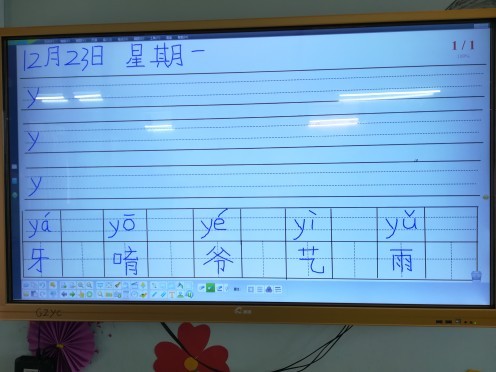 12月23日 星期一
1/1
y
y
y
yá yō yé yì yǔ
牙 唷 爷 艺 雨